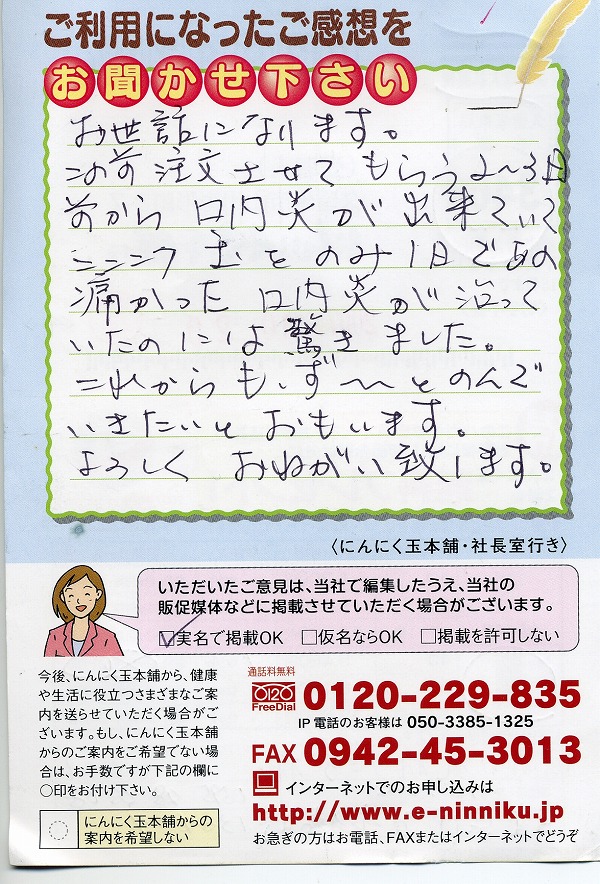 ご利用になったご感想を
お聞かせ下さい
お世話になります。
この前注文させてもらう2〜3日
前から口内炎が出来ていて
ニンニク玉をのみ1日であの
痛かった口内炎が治って
いたのには驚きました。
これからもずーっとのんで
いきたいとおもいます。
よろしくおねがい致します。
〈にんにく玉本舗・社長室行き〉
いただいたご意見は、当社で編集したうえ、当社の
販促媒体などに掲載させていただく場合がございます。
☑実名で掲載OK □仮名ならOK □掲載を許可しない
今後、にんにく玉本舗から、健康
や生活に役立つさまざまなご案
内を送らせていただく場合がご
ざいます。もし、にんにく玉本舗
からのご案内をご希望でない場
合は、お手数ですが下記の欄に
○印をお付け下さい。
にんにく玉本舗からの
案内を希望しない
通話料無料
0120
FreeDial
0120-229-835
IP電話のお客様は 050-3385-1325
FAX 0942-45-3013
インターネットでのお申し込みは
http://www.e-ninniku.jp
お急ぎの方はお電話、FAXまたはインターネットでどうぞ